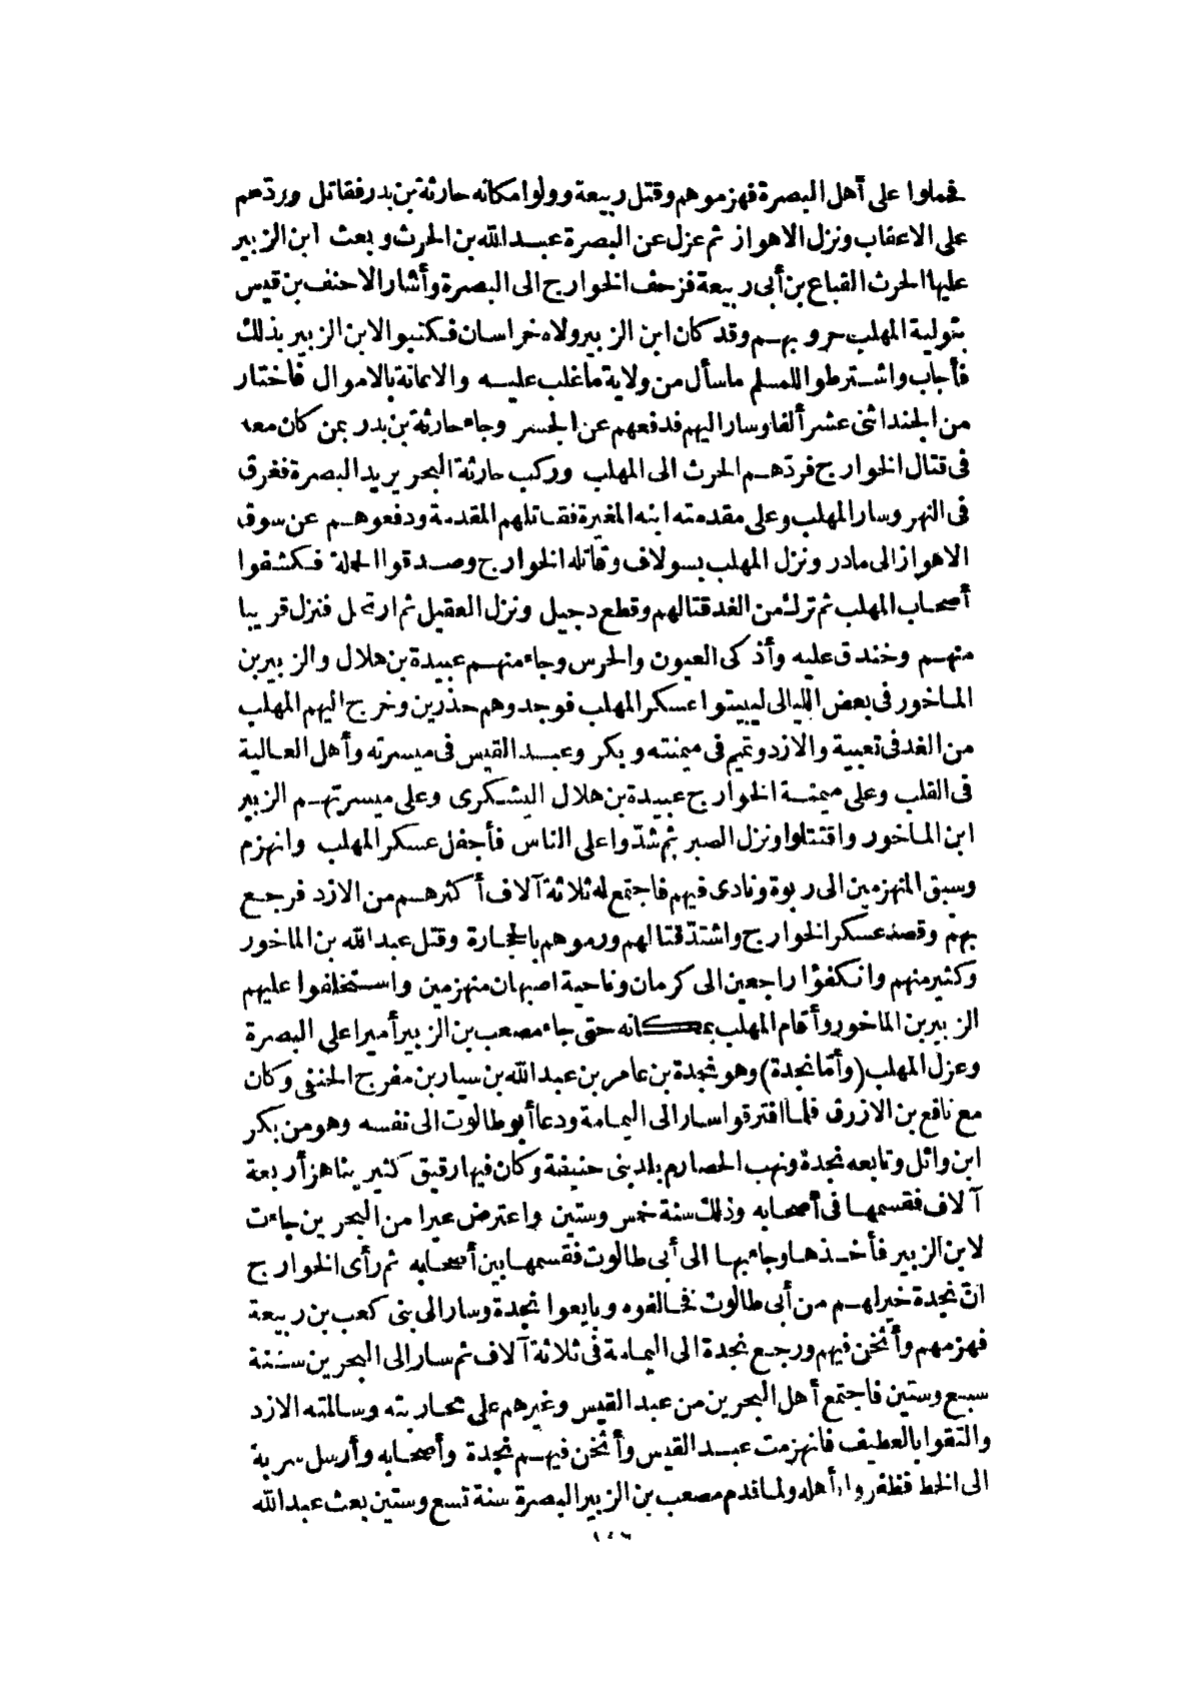 فحملوا على أهل البصرة فهزموهم وقتل ربيعة وولوا مكانه حارثة بن بدر فقاتل وردّهم
على الاعقاب ونزل الاهواز ثم عزل عن البصرة عبد الله بن الحرث وبعث ابن الزبير
عليها الحرث القباع بن أبى ربيعة فزحف الخوارج الى البصرة وأشار الاحنف بن قيس
بتولية المهلب حروبهم وقد كان ابن الزبير ولاه خراسان فكتبوا لابن الزبير بذلك
فأجاب واشترطوا للمسلم ماسأل من ولاية ماغلب عليه والاعانة بالاموال فاختار
من الجند اثنى عشر ألفا وسار اليهم فدفعهم عن الجسر وجاء حارثة بن بدر بمن كان معه
فى قتال الخوارج فردّهم الحرث الى المهلب وركب حارثة البحر يريد البصرة فغرق
فى النهر وسار المهلب وعلى مقدمته ابنه المغيرة فقاتلهم المقدمة ودفعوهم عن سوق
الاهواز الى مادر ونزل المهلب بسولاف وقاتله الخوارج وصدقوا الحملة فكشفوا
أصحاب المهلب ثم ترك من الغد قتالهم وقطع دجيل ونزل العقيل ثم ارتحل فنزل قريبا
منهم وخندق عليه وأذكى العيون والحرس وجاء منهم عبيدة بن هلال والزبير بن
الماخور فى بعض الليالى ليبيتوا عسكر المهلب فوجدوهم حذرين وخرج اليهم المهلب
من الغد فى تعبية والازد وتميم فى ميمنته وبكر وعبد القيس فى ميسرته وأهل العالية
فى القلب وعلى ميمنة الخوارج عبيدة بن هلال اليشكرى وعلى ميسرتهم الزبير
ابن الماخور واقتتلوا ونزل الصبر ثم شدّوا على الناس فأجفل عسكر المهلب وانهزم
وسبق المنهزمين الى ربوة ونادى فيهم فاجتمع له ثلاثة آلاف أكثرهم من الازد فرجع
بهم وقصد عسكر الخوارج واشتدّ قتالهم ورموهم بالحجارة وقتل عبد الله بن الماخور
وكثير منهم وانكفؤا راجعين الى كرمان وناحية اصبهان منهزمين واستخلفوا عليهم
الزبير بن الماخور وأقام المهلب بمكانه حتى جاء مصعب بن الزبير أميرا على البصرة
وعزل المهلب (وأمّا نجدة) وهو نجدة بن عامر بن عبد الله بن سيار بن مفرج الحنفى وكان
مع نافع بن الازرق فلما افترقوا سار الى اليمامة ودعا أبو طالوت الى نفسه وهو من بكر
ابن وائل وتابعه نجدة ونهب الحصارم بلد بنى حنيفة وكان فيها رقيق كثير يناهز أربعة
آلاف فقسمها فى أصحابه وذلك سنة خمس وستين واعترض عيرا من البحرين جاءت
لابن الزبير فأخذها وجاء بها الى أبى طالوت فقسمها بين أصحابه ثم رأى الخوارج
انّ نجدة خير لهم من أبى طالوت فخالفوه وبايعوا نجدة وسار الى بنى كعب بن ربيعة
فهزمهم وأثخن فيهم ورجع نجدة الى اليمامة فى ثلاثة آلاف ثم سار الى البحرين سنة
سبع وستين فاجتمع أهل البحرين من عبد القيس وغيرهم على محاربته وسالمته الازد
والتقوا بالعطيف فانهزمت عبد القيس وأثخن فيهم نجدة وأصحابه وأرسل سرية
الى الخط فظفروا بأهله ولما قدم مصعب بن الزبير البصرة سنة تسع وستين بعث عبد الله
١٤٦